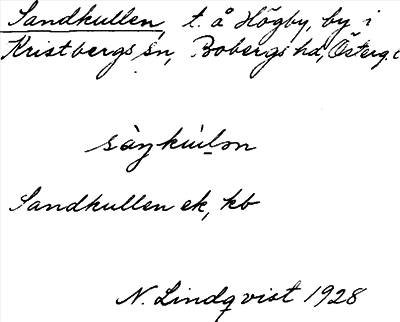 Sandkullen, t. å Högby, by i
Kristbergs sn, Bobergs hd, Österg.
sàŋkùlən
Sandkullen ek, kb
N. Lindqvist 1928